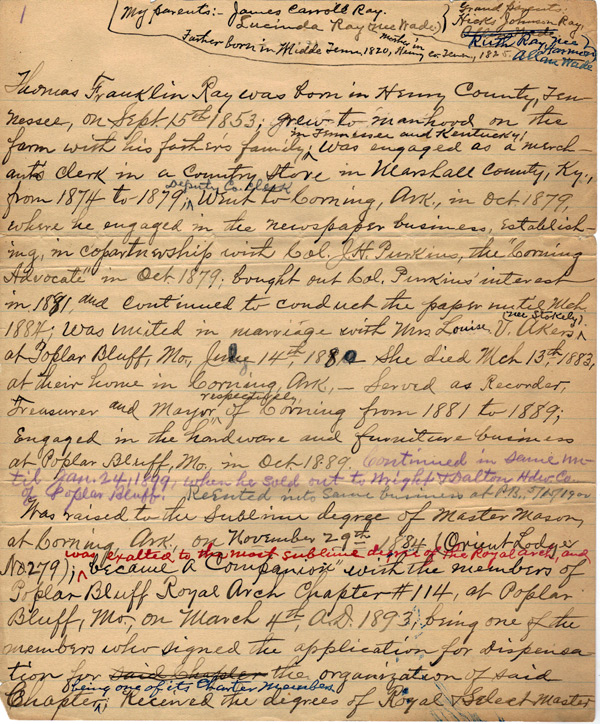 1
My parents:- James Carroll Ray.
Lucinda Ray (nee Wade)
Grand parents:
Hicks Johnson Ray.
Ruth Ray, nee Harmon
Allen Wade
Father born in Middle Tenn, 1820, Mother in Henry co. Tenn, 182
Thomas Franklin Ray was born in Henry County, Ten-
nessee, on Sept. 15th 1853; grew to manhood on the
farm with his father's family, in Tennessee and Kentucky; was engaged as a merch-
ant's clerk in a Country Store in Marshall County, Ky.,
from 1874 to 1879, Deputy Co. Clerk Went to Corning, Ark., in Oct 1879,
where he engaged in the newspaper business, establish-
ing, in copartnership with Col. J.H. Purkins, the "Corning
Advocate" in Oct. 1879; bought out Col. Purkins' interest
in 1881, and continued to conduct the paper until Mch
1887; was united in marriage with Mrs Louise V. Akers (nee Stokely),
at Poplar Bluff, Mo, July 14th, 1880 - She died Mch 13th, 1883,
at their home in Corning, Ark, - Served as Recorder,
Treasurer and Mayor, respectively, of Corning from 1881 to 1889;
Engaged in the hardware and furniture business
at Poplar Bluff, Mo, in Oct. 1889. Continued in same un-
til Jan. 24, 1899, when he sold out to Wright & Dalton Hdw Co.
of Poplar Bluff. Reented into same business at P.B.
Was raised to the Sublime degree of Master Mason,
at Corning Ark, on November 29th 1884 (Orient Lodge
No 279); was exalted to the most sublime degree of the Royal arch, and
became a Companion" with the members of
Poplar Bluff Royal Arch Chapter #114, at Poplar
Bluff, Mo, on March 4th, A.D. 1893; being one of the
members who signed the application for dispensa-
tion for said Chapter the organization of said
Chapter; being one of its Charter Members. received the degrees of Royal & Select Master